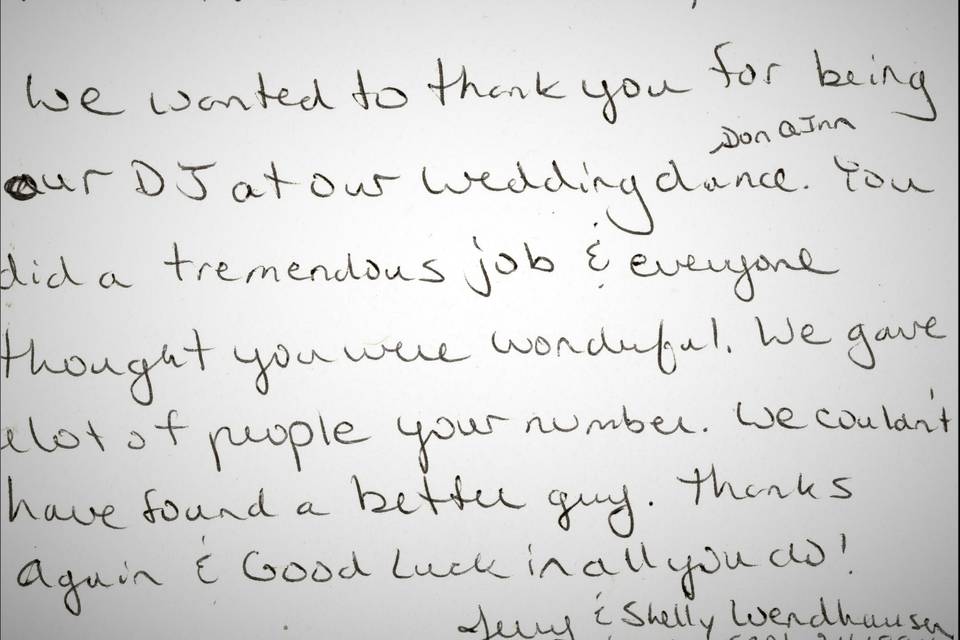 We wanted to thank you for being
Don Q Inn
our DJ at our wedding dance. You
did a tremendous job & everyone
thought you were wonderful. We gave
alot of people your number. We couldn't
have found a better guy. Thanks
Again & Good Luck in all you do!
Jerry & Shelly Wendhausen